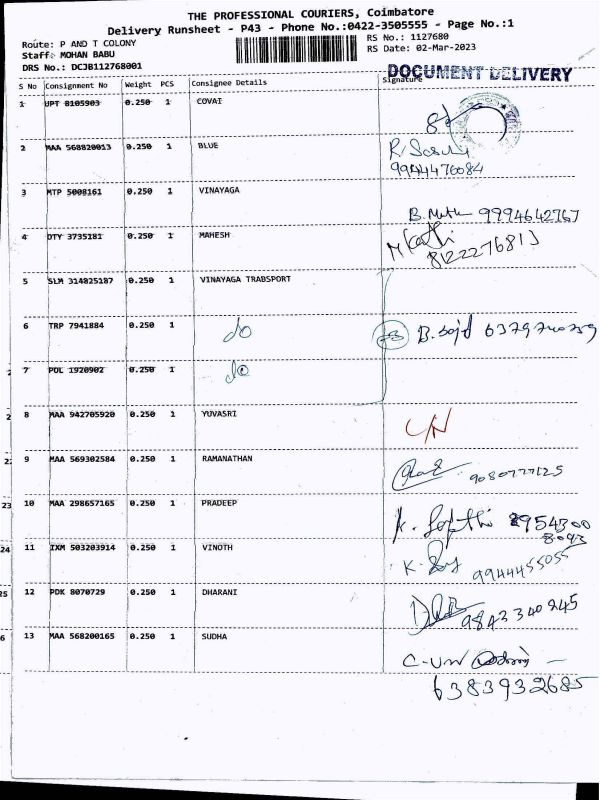 THE PROFESSIONAL COURIERS, Coimbatore
Delivery Runsheet - P43 - Phone No.:0422-3505555 - Page No.:1
Route: P AND T COLONY
RS No.: 1127680
Staff: MOHAN BABU
RS Date: 02-Mar-2023
DRS No.: DCJB112768001
DOCUMENT DELIVERY
S No Consignment No Weight PCS Consignee Details Signature
1 JPT 8105903 0.250 1 COVAI
2 MAA 568820013 0.250 1 BLUE
9944476084
3 MTP 5008161 0.250 1 VINAYAGA
9994642767
4 DTY 3735181 0.250 1 MAHESH
5 SLM 314825187 0.250 1 VINAYAGA TRABSPORT
6 TRP 7941884 0.250 1 do
7 PDL 1920902 0.250 1 do
8 MAA 942705920 0.250 1 YUVASRI
9 MAA 569302584 0.250 1 RAMANATHAN
9080777125
23 10 MAA 298657165 0.250 1 PRADEEP
24 11 IXM 503203914 0.250 1 VINOTH
9944455055
12 PDK 8070729 0.250 1 DHARANI
9843340245
13 MAA 568200165 0.250 1 SUDHA
6383932685